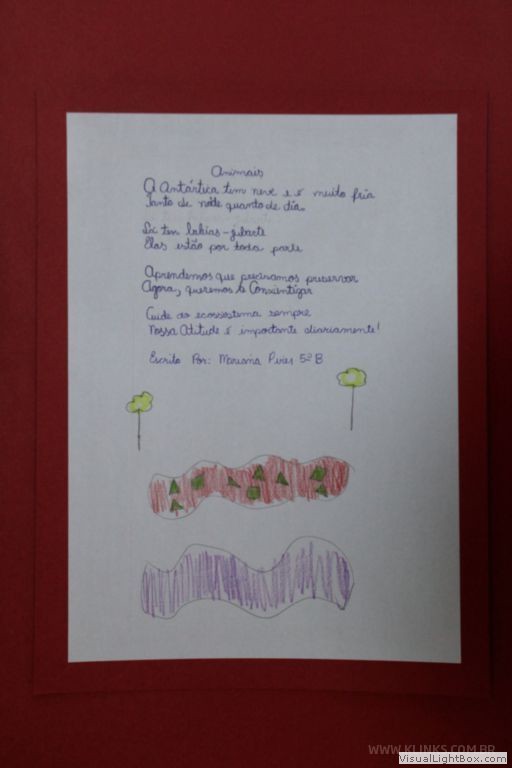 Animais
A Antártica tem neve e é muito fria
Tanto de noite quanto de dia.
Lá tem bahias-jubarte
Elas estão por toda parte
Aprendemos que precisamos preservar
Agora, queremos te Conxientizar
Cuide do ecossistema sempre
Nossa Atitude é importante diariamente!
Escrito Por: Mariana Pires 5º B
WWW.KLINKS.COM.BR
VisualLightBox.com